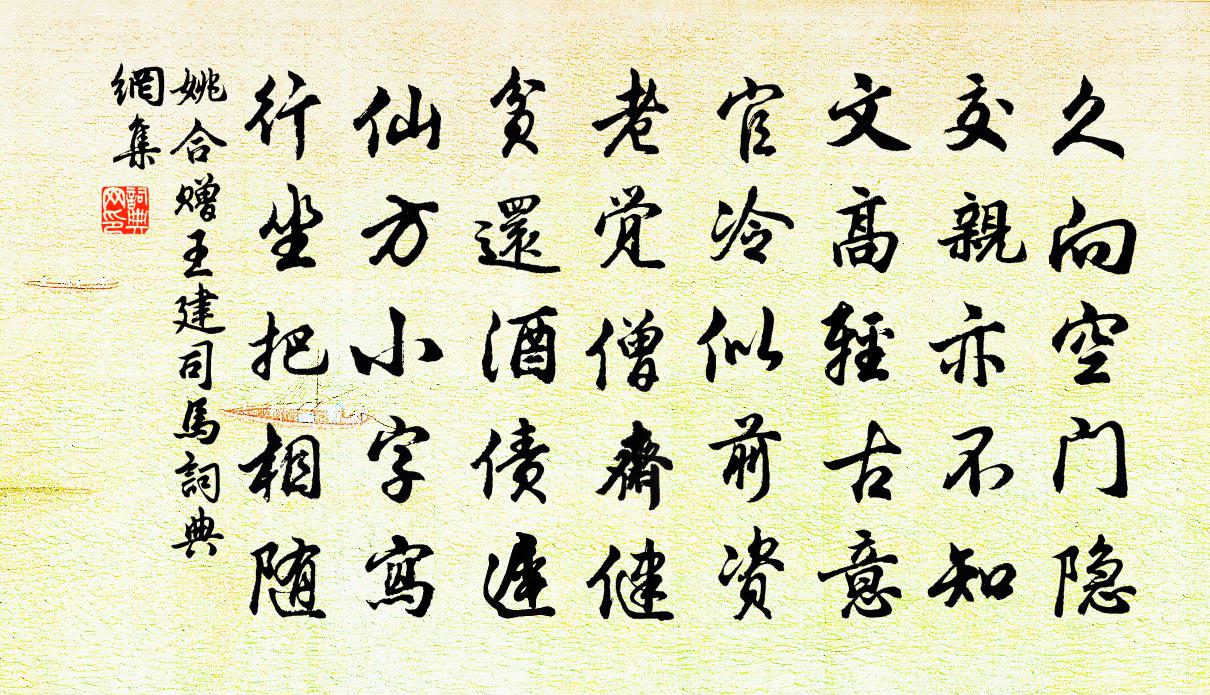 久向空门隐
交親亦不知
文高輕古意
官冷似前资
老觉僧齋健
贫還酒债遲
仙方小字寫
行坐把相随
姚合赠王建司馬詞典
網集
詞典